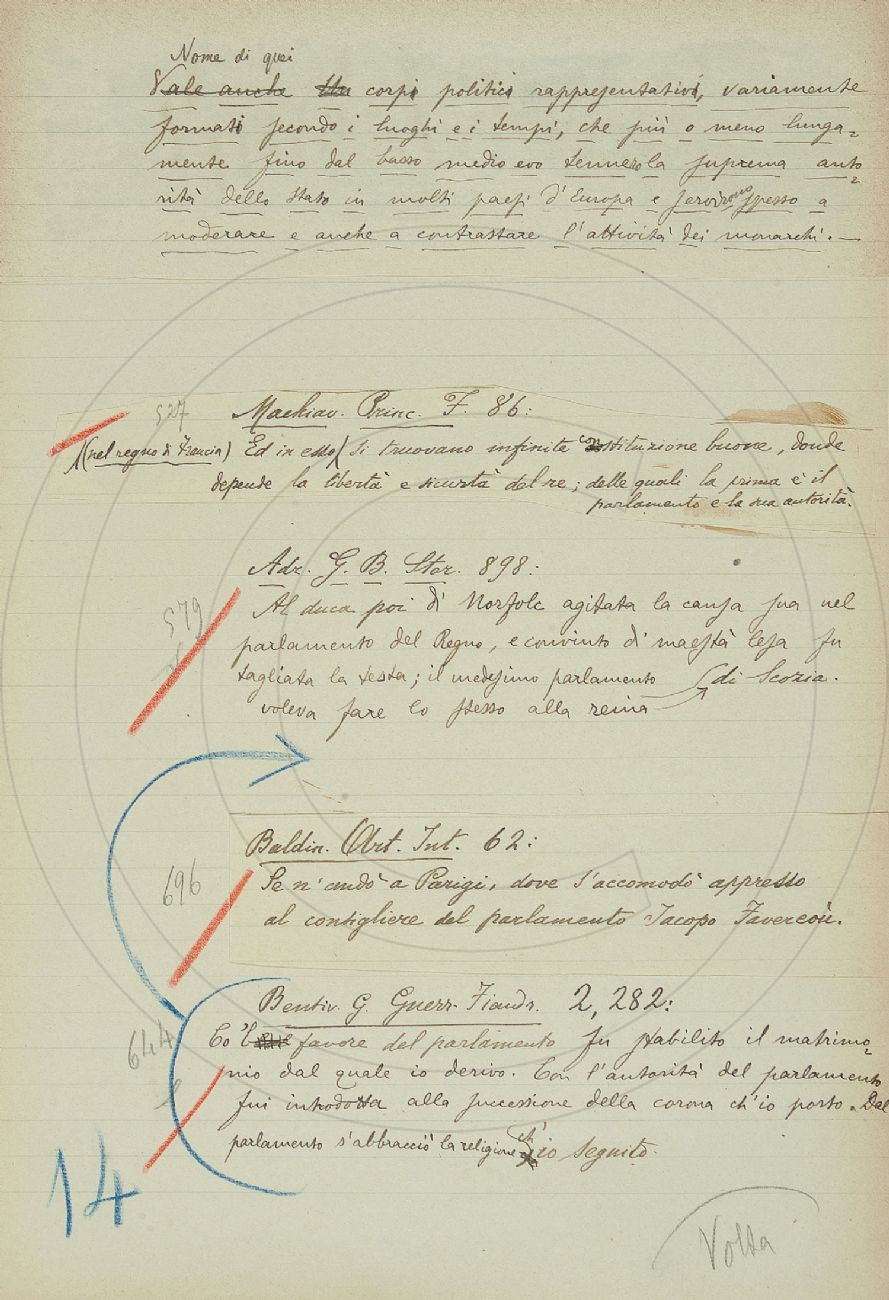 Nome di quei
Vale anche corpi politici rappresentativi, variamente
formati secondo i luoghi e i tempi, che più o meno lunga-
mente fino dal basso medio evo tennero la suprema auto-
rità dello Stato in molti paesi d'Europa e servirono spesso a
moderare e anche a contrastare l'attività dei monarchi. —
527
Machiav. Princ. F. 86:
(nel regno di Francia) Ed in esso si truovano infinite costituzione buone, donde
depende la libertà e sicurtà del re; delle quali la prima è il
parlamento e la sua autorità.
Adr. G. B. Stor. 898:
579
Al duca poi di Norfolc agitata la causa sua nel
parlamento del Regno, e convinto di maestà lesa fu
tagliata la testa; il medesimo parlamento
voleva fare lo stesso alla reina di Scozia.
Baldin. Art. Int. 62:
696
Se n'andò a Parigi, dove s'accomodò appresso
al consigliere del parlamento Jacopo Favereoù.
Bentiv. G. Guerr. Fiandr. 2, 282:
644
Co'l favore del parlamento fu stabilito il matrimo-
nio dal quale io derivo. Con l'autorità del parlamento
fui introdotta alla successione della corona ch'io porto. Dal
parlamento s'abbracciò la religione ch'io seguito.
14
Volta